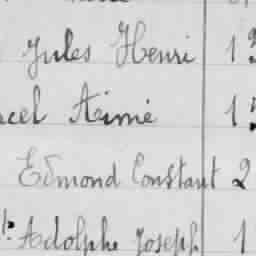 Jules Henri 1
Aimé 1
Edmond Constant 2
Adolphe Joseph 1